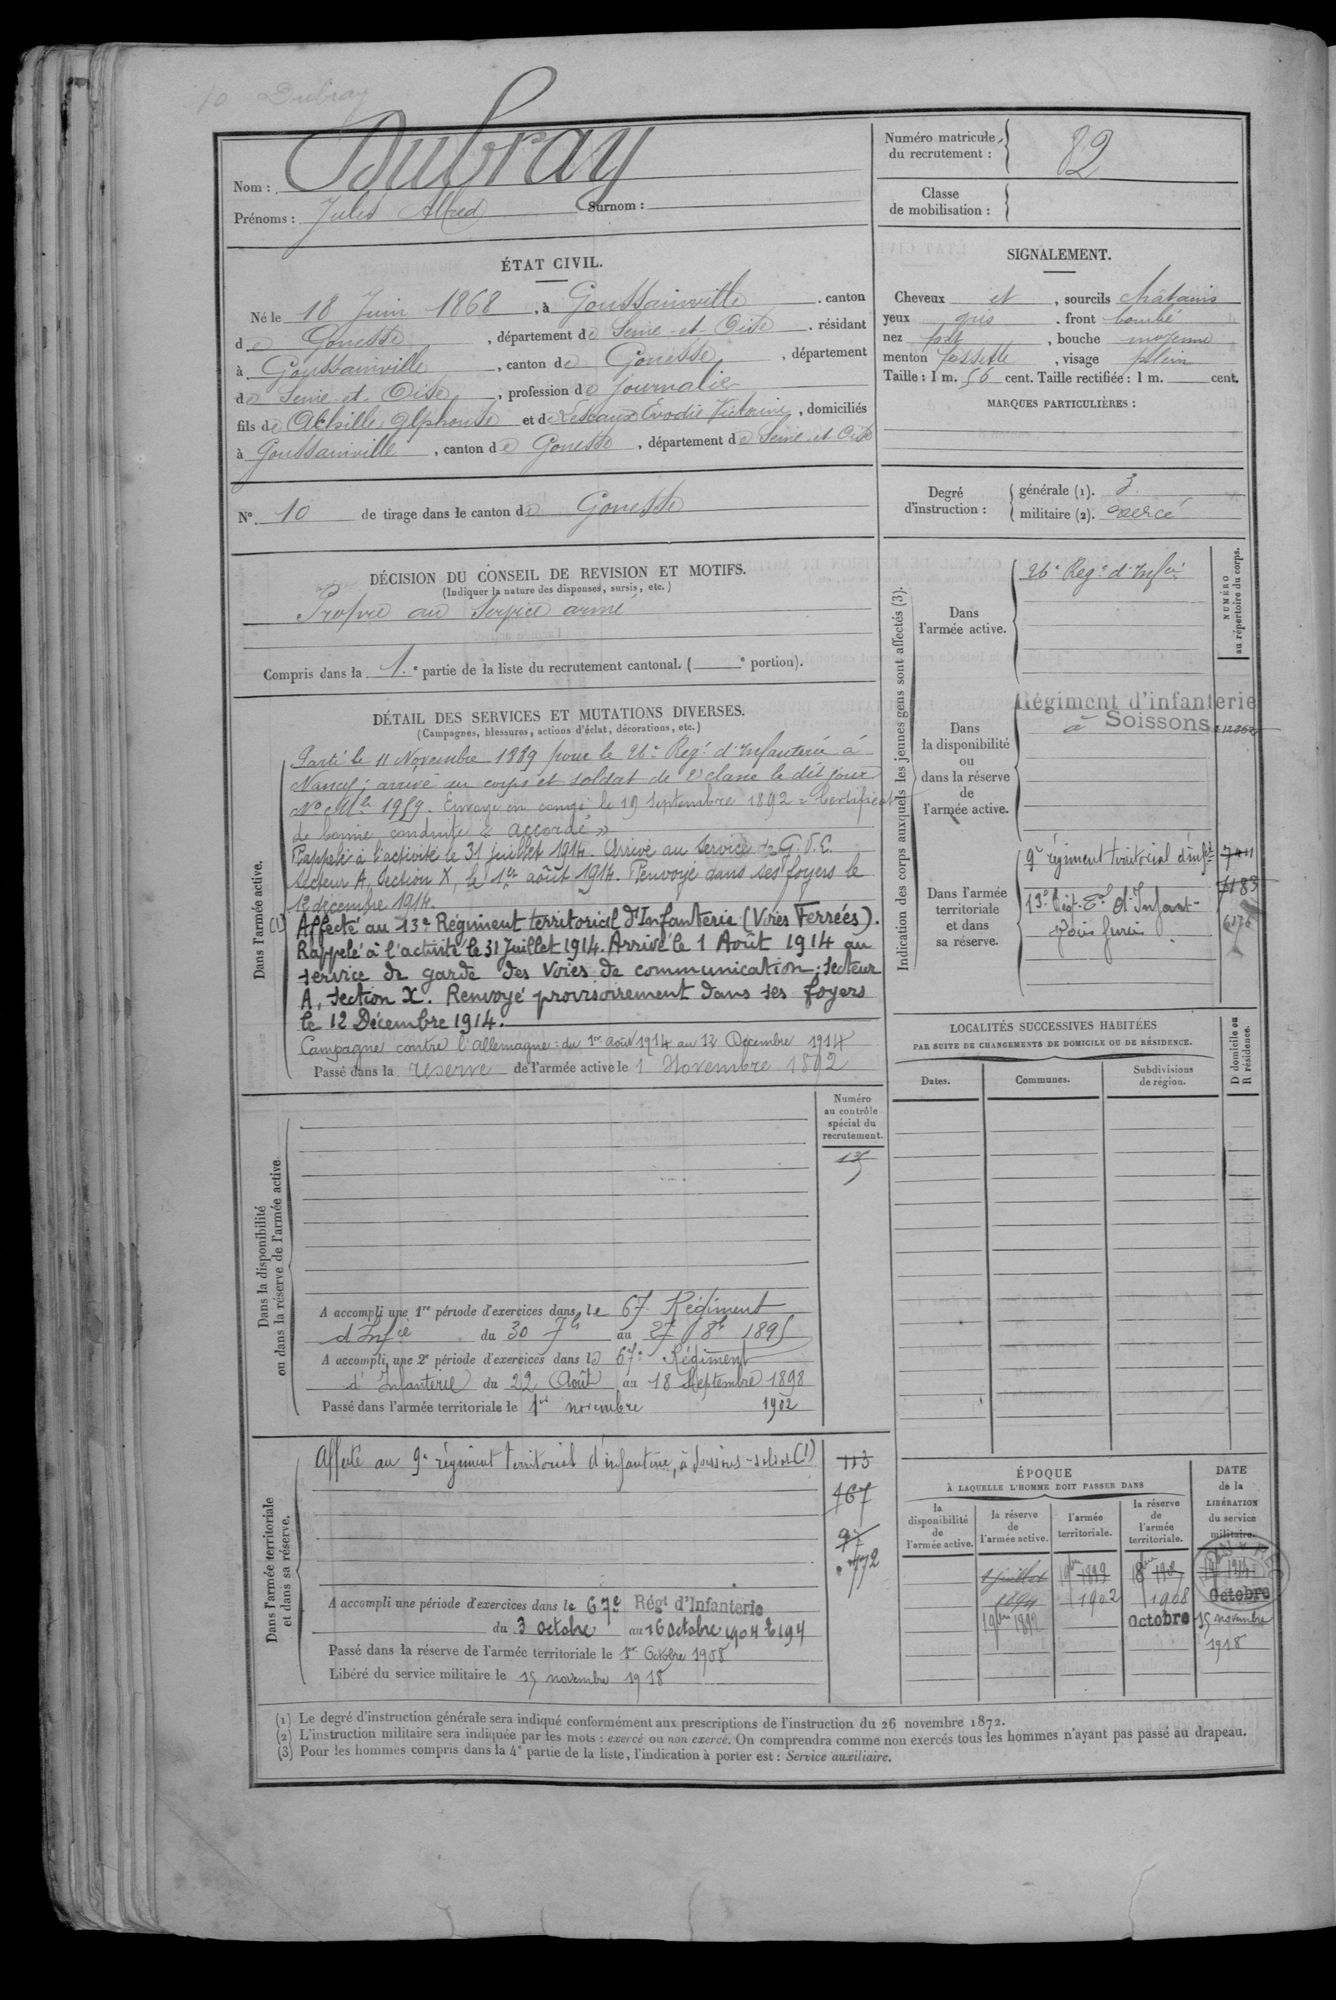 10 Dubray
Nom : Dubray
Prénoms : Jules Alfred Surnom :
Numéro matricule du recrutement : 82
Classe de mobilisation :
ÉTAT CIVIL.
Né le 18 Juin 1868, à Goussainville, canton
de Gonesse, département de Seine-et-Oise, résidant
à Goussainville, canton de Gonesse, département
de Seine-et-Oise, profession de journalier
fils de Achille Alphonse et de Lescaux Evodie Victorine, domiciliés
à Goussainville, canton de Gonesse, département de Seine-et-Oise
N° 10 de tirage dans le canton de Gonesse
SIGNALEMENT.
Cheveux et , sourcils châtains
yeux gris , front bombé
nez pet , bouche moyenne
menton fossette , visage plein
Taille : 1 m. 56 cent. Taille rectifiée : 1 m. cent.
MARQUES PARTICULIÈRES :
Degré d'instruction : générale (1). 3
militaire (2). exercé
DÉCISION DU CONSEIL DE REVISION ET MOTIFS.
(Indiquer la nature des dispenses, sursis, etc.)
Propre au service armé
Compris dans la 1.e partie de la liste du recrutement cantonal. ( e portion).
DÉTAIL DES SERVICES ET MUTATIONS DIVERSES.
(Campagnes, blessures, actions d'éclat, décorations, etc.)
Dans l'armée active.
Parti le 11 Novembre 1889 pour le 26e Reg.t d'Infanterie à
Nancy ; arrivé au corps et soldat de 2e classe le dit jour
No Mle 1959. Envoyé en congé le 19 Septembre 1892 = Certificat
de bonne conduite « accordé »
Rappelé à l'activité le 31 juillet 1914. Arrivé au service de G.V.C.
Secteur A, Section X, le 1er août 1914. Renvoyé dans ses foyers le
12 décembre 1914.
(1) Affecté au 13e Régiment territorial d'Infanterie (Voies Ferrées).
Rappelé à l'activité le 31 Juillet 1914. Arrivé le 1 Août 1914 au
service de garde des voies de communication ; secteur
A, section X. Renvoyé provisoirement dans ses foyers
le 12 Décembre 1914.
Campagne contre l'allemagne : du 1er août 1914 au 12 Décembre 1914
Passé dans la réserve de l'armée active le 1 Novembre 1892
Indication des corps auxquels les jeunes gens sont affectés (3).
NUMÉRO au répertoire du corps.
Dans l'armée active.
26e Reg.t d'Infie
Dans la disponibilité ou dans la réserve de l'armée active.
Régiment d'infanterie
à Soissons
Dans l'armée territoriale et dans sa réserve.
9e régiment territorial d'infie 7411
13e Rég.t Tal d'Infant- 7183
Voies ferrées 6176
LOCALITÉS SUCCESSIVES HABITÉES
PAR SUITE DE CHANGEMENTS DE DOMICILE OU DE RÉSIDENCE.
D domicile ou R résidence.
Dates. Communes. Subdivisions de région.
Dans la disponibilité ou dans la réserve de l'armée active
Numéro au contrôle spécial du recrutement.
A accompli une 1re période d'exercices dans le 67e Régiment
d'Infie du 30 7bre au 27 8bre 1895
A accompli une 2e période d'exercices dans le 67e Régiment
d'Infanterie du 22 Août au 18 Septembre 1898
Passé dans l'armée territoriale le 1er novembre 1902
Dans l'armée territoriale et dans sa réserve.
Affecté au 9e régiment territorial d'infanterie, à Soissons - soldat (1)
113
467
97
772
A accompli une période d'exercices dans le 67e Régt d'Infanterie
du 3 octobre au 16 octobre 1904
Passé dans la réserve de l'armée territoriale le 1er Octobre 1908
Libéré du service militaire le 15 novembre 1918
ÉPOQUE
À LAQUELLE L'HOMME DOIT PASSER DANS
la disponibilité de l'armée active.
la réserve de l'armée active.
l'armée territoriale.
la réserve de l'armée territoriale.
DATE de la LIBÉRATION du service militaire.
1 juillet 1894
1 9bre 1892
1 9bre 1899
1902
1908
Octobre
Octobre
15 novembre
1918
(1) Le degré d'instruction générale sera indiqué conformément aux prescriptions de l'instruction du 26 novembre 1872.
(2) L'instruction militaire sera indiquée par les mots : exercé ou non exercé. On comprendra comme non exercés tous les hommes n'ayant pas passé au drapeau.
(3) Pour les hommes compris dans la 4e partie de la liste, l'indication à porter est : Service auxiliaire.